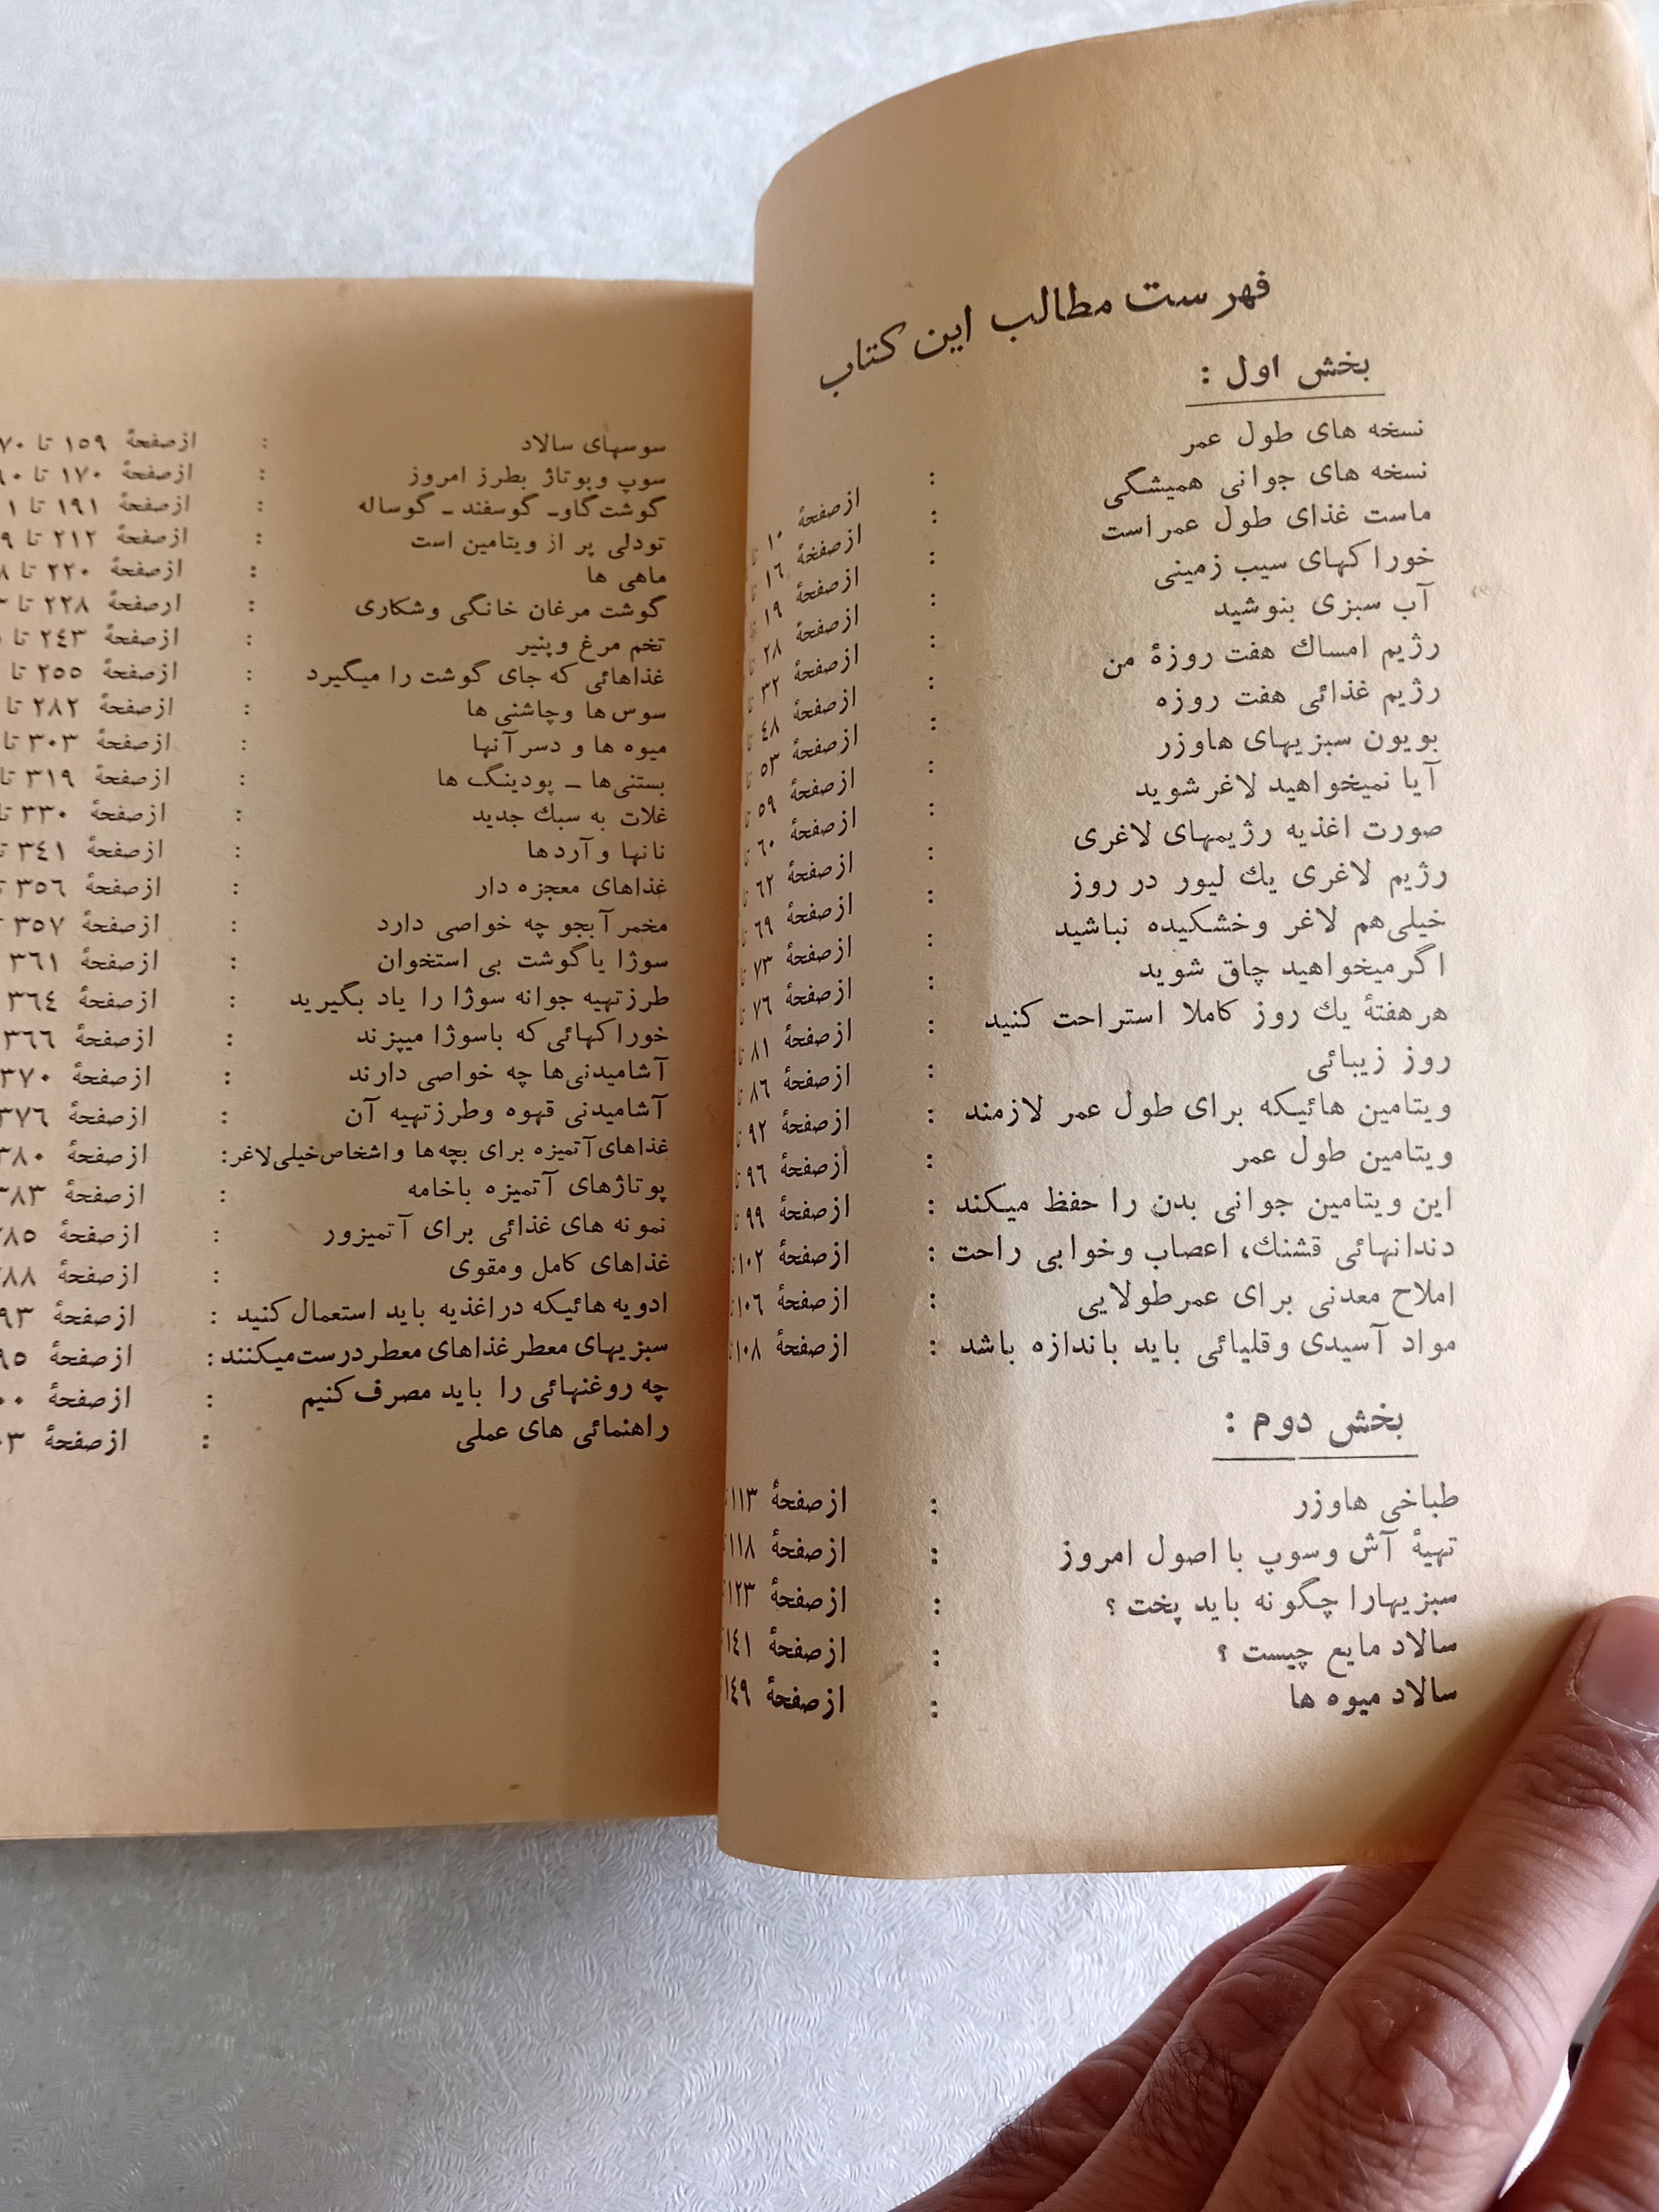 فهرست مطالب این کتاب
بخش اول :
نسخه های طول عمر : ازصفحهٔ ۱۰ تا
نسخه های جوانی همیشگی : ازصفحهٔ ۱٦ تا
ماست غذای طول عمراست : ازصفحهٔ ۱۹ تا
خوراکهای سیب زمینی : ازصفحهٔ ۲۸ تا
آب سبزی بنوشید : ازصفحهٔ ۳۲ تا
رژیم امساك هفت روزهٔ من : ازصفحهٔ ٤۸ تا
رژیم غذائی هفت روزه : ازصفحهٔ ۵۳ تا
بویون سبزیهای هاوزر : ازصفحهٔ ۵۹ تا
آیا نمیخواهید لاغرشوید : ازصفحهٔ ٦۰ تا
صورت اغذیه رژیمهای لاغری : ازصفحهٔ ٦۲ تا
رژیم لاغری یك لیور در روز : ازصفحهٔ ٦۹ تا
خیلی هم لاغر وخشکیده نباشید : ازصفحهٔ ۷۳ تا
اگرمیخواهید چاق شوید : ازصفحهٔ ۷٦ تا
هرهفتهٔ یك روز کاملا استراحت کنید : ازصفحهٔ ۸۱ تا
روز زیبائی : ازصفحهٔ ۸٦ تا
ویتامین هائیکه برای طول عمر لازمند : ازصفحهٔ ۹۲ تا
ویتامین طول عمر : ازصفحهٔ ۹٦ تا
این ویتامین جوانی بدن را حفظ میکند : ازصفحهٔ ۹۹ تا
دندانهائی قشنك، اعصاب وخوابی راحت : ازصفحهٔ ۱۰۲
املاح معدنی برای عمرطولایی : ازصفحهٔ ۱۰٦
مواد آسیدی وقلیائی باید باندازه باشد : ازصفحهٔ ۱۰۸
بخش دوم :
طباخی هاوزر : ازصفحهٔ ۱۱۳
تهیهٔ آش وسوپ با اصول امروز : ازصفحهٔ ۱۱۸
سبزیهارا چگونه باید پخت ؟ : ازصفحهٔ ۱۲۳
سالاد مایع چیست ؟ : ازصفحهٔ ۱٤۱
سالاد میوه ها : ازصفحهٔ ۱٤۹
سوسهای سالاد : ازصفحهٔ ۱۵۹ تا
سوپ وپوتاژ بطرز امروز : ازصفحهٔ ۱۷۰ تا
گوشت گاوـ گوسفند ـ گوساله : ازصفحهٔ ۱۹۱ تا
تودلی پر از ویتامین است : ازصفحهٔ ۲۱۲ تا
ماهی ها : ازصفحهٔ ۲۲۰ تا
گوشت مرغان خانگی وشکاری : ارصفحهٔ ۲۲۸ تا
تخم مرغ وپنیر : ازصفحهٔ ۲٤۳ تا
غذاهائی که جای گوشت را میگیرد : ازصفحهٔ ۲۵۵ تا
سوس ها وچاشنی ها : ازصفحهٔ ۲۸۲ تا
میوه ها و دسرآنها : ازصفحهٔ ۳۰۳ تا
بستنی‌ها ـ پودینگ ها : ازصفحهٔ ۳۱۹ تا
غلات به سبك جدید : ازصفحهٔ ۳۳۰ تا
نانها و آردها : ازصفحهٔ ۳٤۱
غذاهای معجزه دار : ازصفحهٔ ۳۵٦
مخمر آبجو چه خواصی دارد : ازصفحهٔ ۳۵۷
سوژا یا گوشت بی استخوان : ازصفحهٔ ۳٦۱
طرزتهیه جوانه سوژا را یاد بگیرید : ازصفحهٔ ۳٦٤
خوراکهائی که باسوژا میپزند : ازصفحهٔ ۳٦٦
آشامیدنی‌ها چه خواصی دارند : ازصفحهٔ ۳۷۰
آشامیدنی قهوه وطرزتهیه آن : ازصفحهٔ ۳۷٦
غذاهای آتمیزه برای بچه ها و اشخاص خیلی لاغر: ازصفحهٔ ۳۸۰
پوتاژهای آتمیزه باخامه : ازصفحهٔ ۳۸۳
نمونه های غذائی برای آتمیزور : ازصفحهٔ
غذاهای کامل ومقوی : ازصفحهٔ
ادویه هائیکه دراغذیه باید استعمال کنید : ازصفحهٔ
سبزیهای معطر غذاهای معطر درست میکنند : ازصفحهٔ
چه روغنهائی را باید مصرف کنیم : ازصفحهٔ
راهنمائی های عملی : ازصفحهٔ